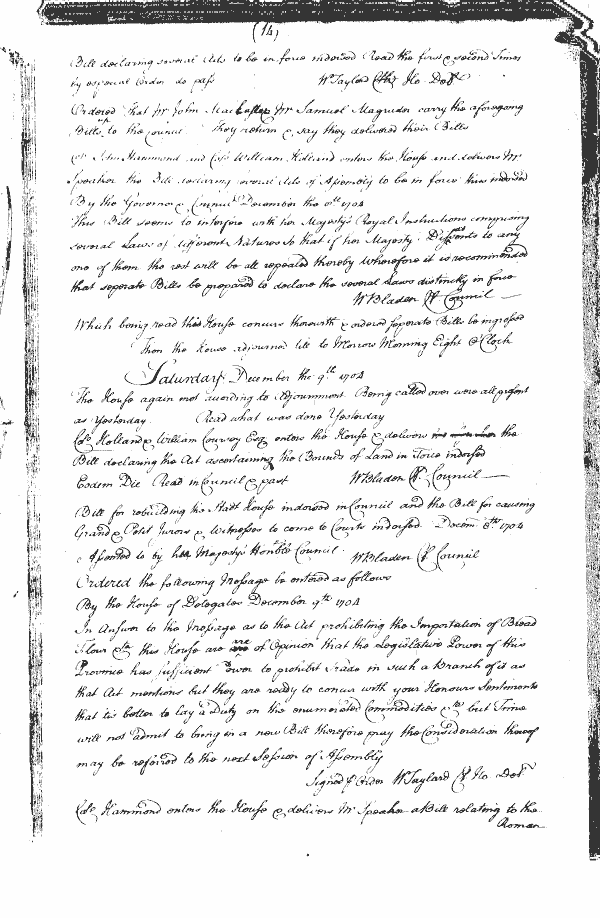 (14)
Bill declaring several Acts to be in force indorsed Read the first & second Times
by especial Order do pass W Taylard Clk Ho. Del.
Ordered that Mr John Macclaster Mr Samuel Magruder carry the aforegoing
Bills up to the Council They return & say they delivered their Bills
Coll John Hammond and Coll William Holland enters the House and delivers Mr
Speaker the Bill declaring several Acts of Assembly to be in force thus indorsed
By the Governor & Council December the 8th 1704
This Bill seems to interfere with her Majestys Royal Instructions comprising
several Laws of different Natures so that if her Majesty Dissents to any
one of them the rest will be all repealed thereby Wherefore it is recommended
that seperate Bills be prepared to declare the several Laws distinctly in force
W Bladen Cl Council
Which being read this House concurs therewith & ordered seperate Bills be ingrossed
Then the House adjourned till to Morrow Morning Eight o Clock
Saturday December the 9th 1704
The House again met according to Adjournment Being called over were all present
as Yesterday Read what was done Yesterday
Coll Holland & William Coursey Esq enters the House & delivers the
Bill declaring the Act ascertaining the Bounds of Land in force indorsed
Eodem Die Read in Council & past W Bladen Cl Council
Bill for rebuilding the Stadt House indorsed in Council and the Bill for causing
Grand & Petit Jurors & Witnesses to come to Courts indorsed Decem 8th 1704
Assented to by her Majestys Honble Council W Bladen Cl Council
Ordered the following Message be entered as follows
By the House of Delegates December 9th 1704
In Answer to the Message as to the Act prohibiting the Importation of Bread
Flour &ca this House are are of Opinion that the Legislative Power of this
Province has sufficient Power to prohibit Trade in such a Branch of it as
that Act mentions but they are ready to concur with your Honours Sentiments
that tis better to lay a Duty on the enumerated Commodities &ca but Time
will not admit to bring in a new Bill therefore pray the Consideration thereof
may be referred to the next Session of Assembly
Signed p Order W Taylard Cl Ho. Del
Coll Hammond enters the House & delivers Mr Speaker a Bill relating to the
Roman